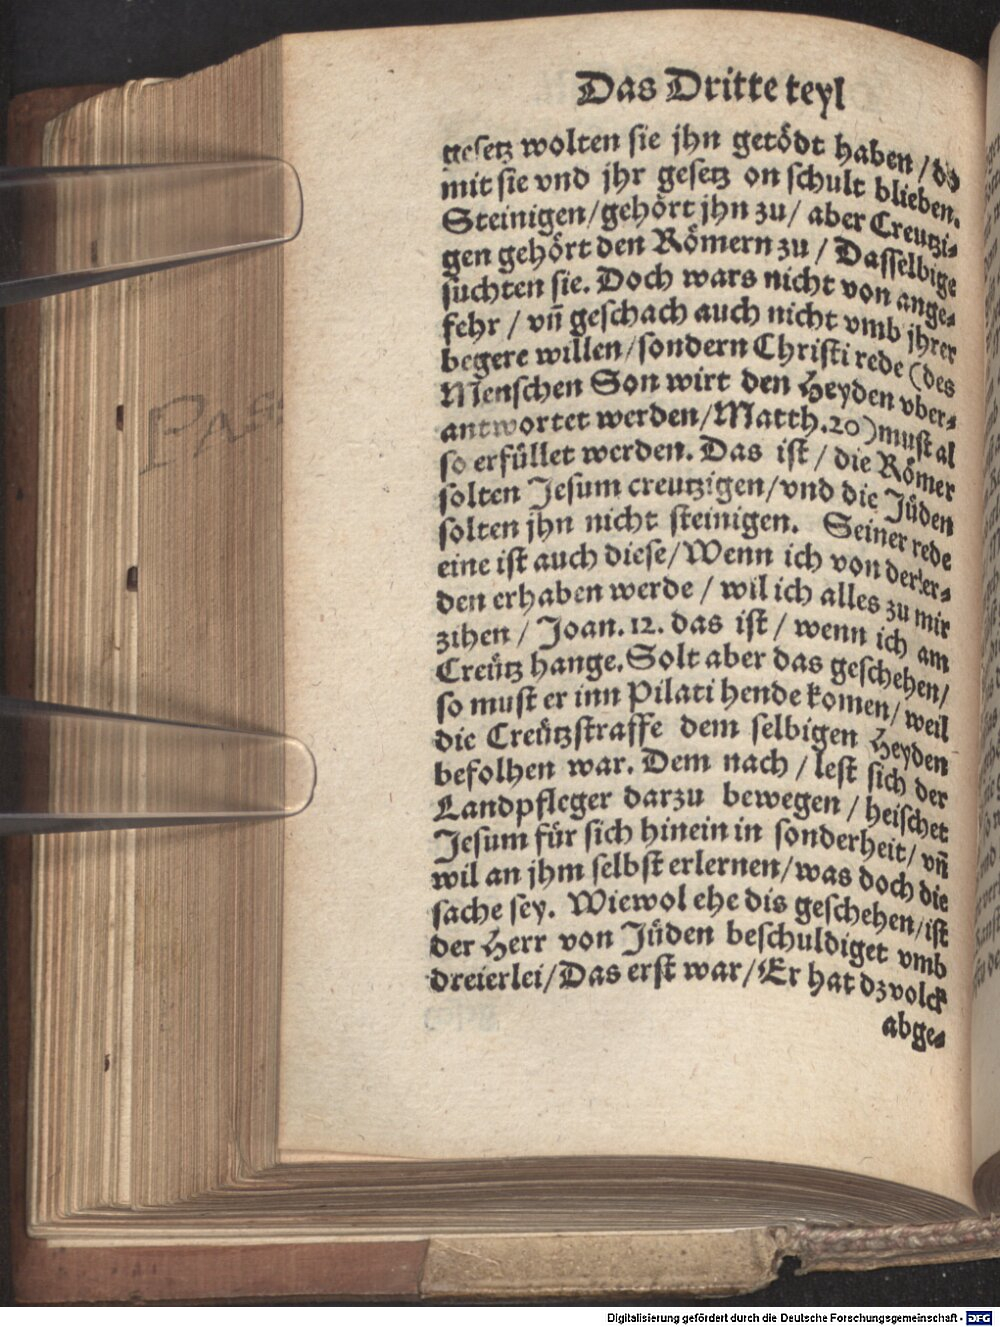 Das Dritte teyl
gesetz wolten sie jhn getödt haben / da
mit sie vnd jhr gesetz on schult blieben.
Steinigen/gehört jhn zu/ aber Creutzi⸗
gen gehört den Römern zu / Dasselbige
suchten sie. Doch wars nicht von ange⸗
fehr / vñ geschach auch nicht vmb jhrer
begere willen/sondern Christi rede (des
Menschen Son wirt den Heyden vber⸗
antwortet werden/Matth.20) must al
so erfüllet werden. Das ist / die Römer
solten Jesum creutzigen/vnd die Jüden
solten jhn nicht steinigen. Seiner rede
eine ist auch diese/Wenn ich von der er⸗
den erhaben werde / wil ich alles zu mir
zihen / Joan. 12. das ist / wenn ich am
Creütz hange. Solt aber das geschehen/
so must er inn Pilati hende komen/ weil
die Creützstraffe dem selbigen Heyden
befolhen war. Dem nach / lest sich der
Landpfleger darzu bewegen / heischet
Jesum für sich hinein in sonderheit/ vñ
wil an jhm selbst erlernen/was doch die
sache sey. Wiewol ehe dis geschehen/ist
der Herr von Jüden beschuldiget vmb
dreierlei/Das erst war/Er hat dz volck
abge⸗
PASS
Digitalisierung gefördert durch die Deutsche Forschungsgemeinschaft - DFG